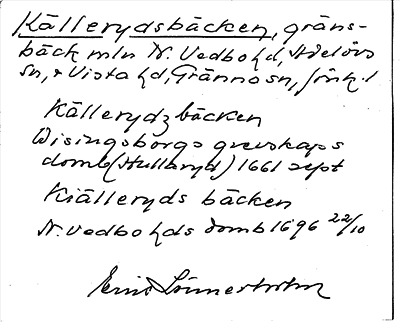 Källerydsbäcken, gräns-
bäck mln N. Vedbo hd, Adelövs
sn, & Vista hd, Gränna sn, Jönk. l
Källerydzbäcken
Wisingsborgs grevskaps
domb (Hullaryd) 1661 sept
Kiälleryds bäcken
N. Vedbo hds domb 1696 22/10